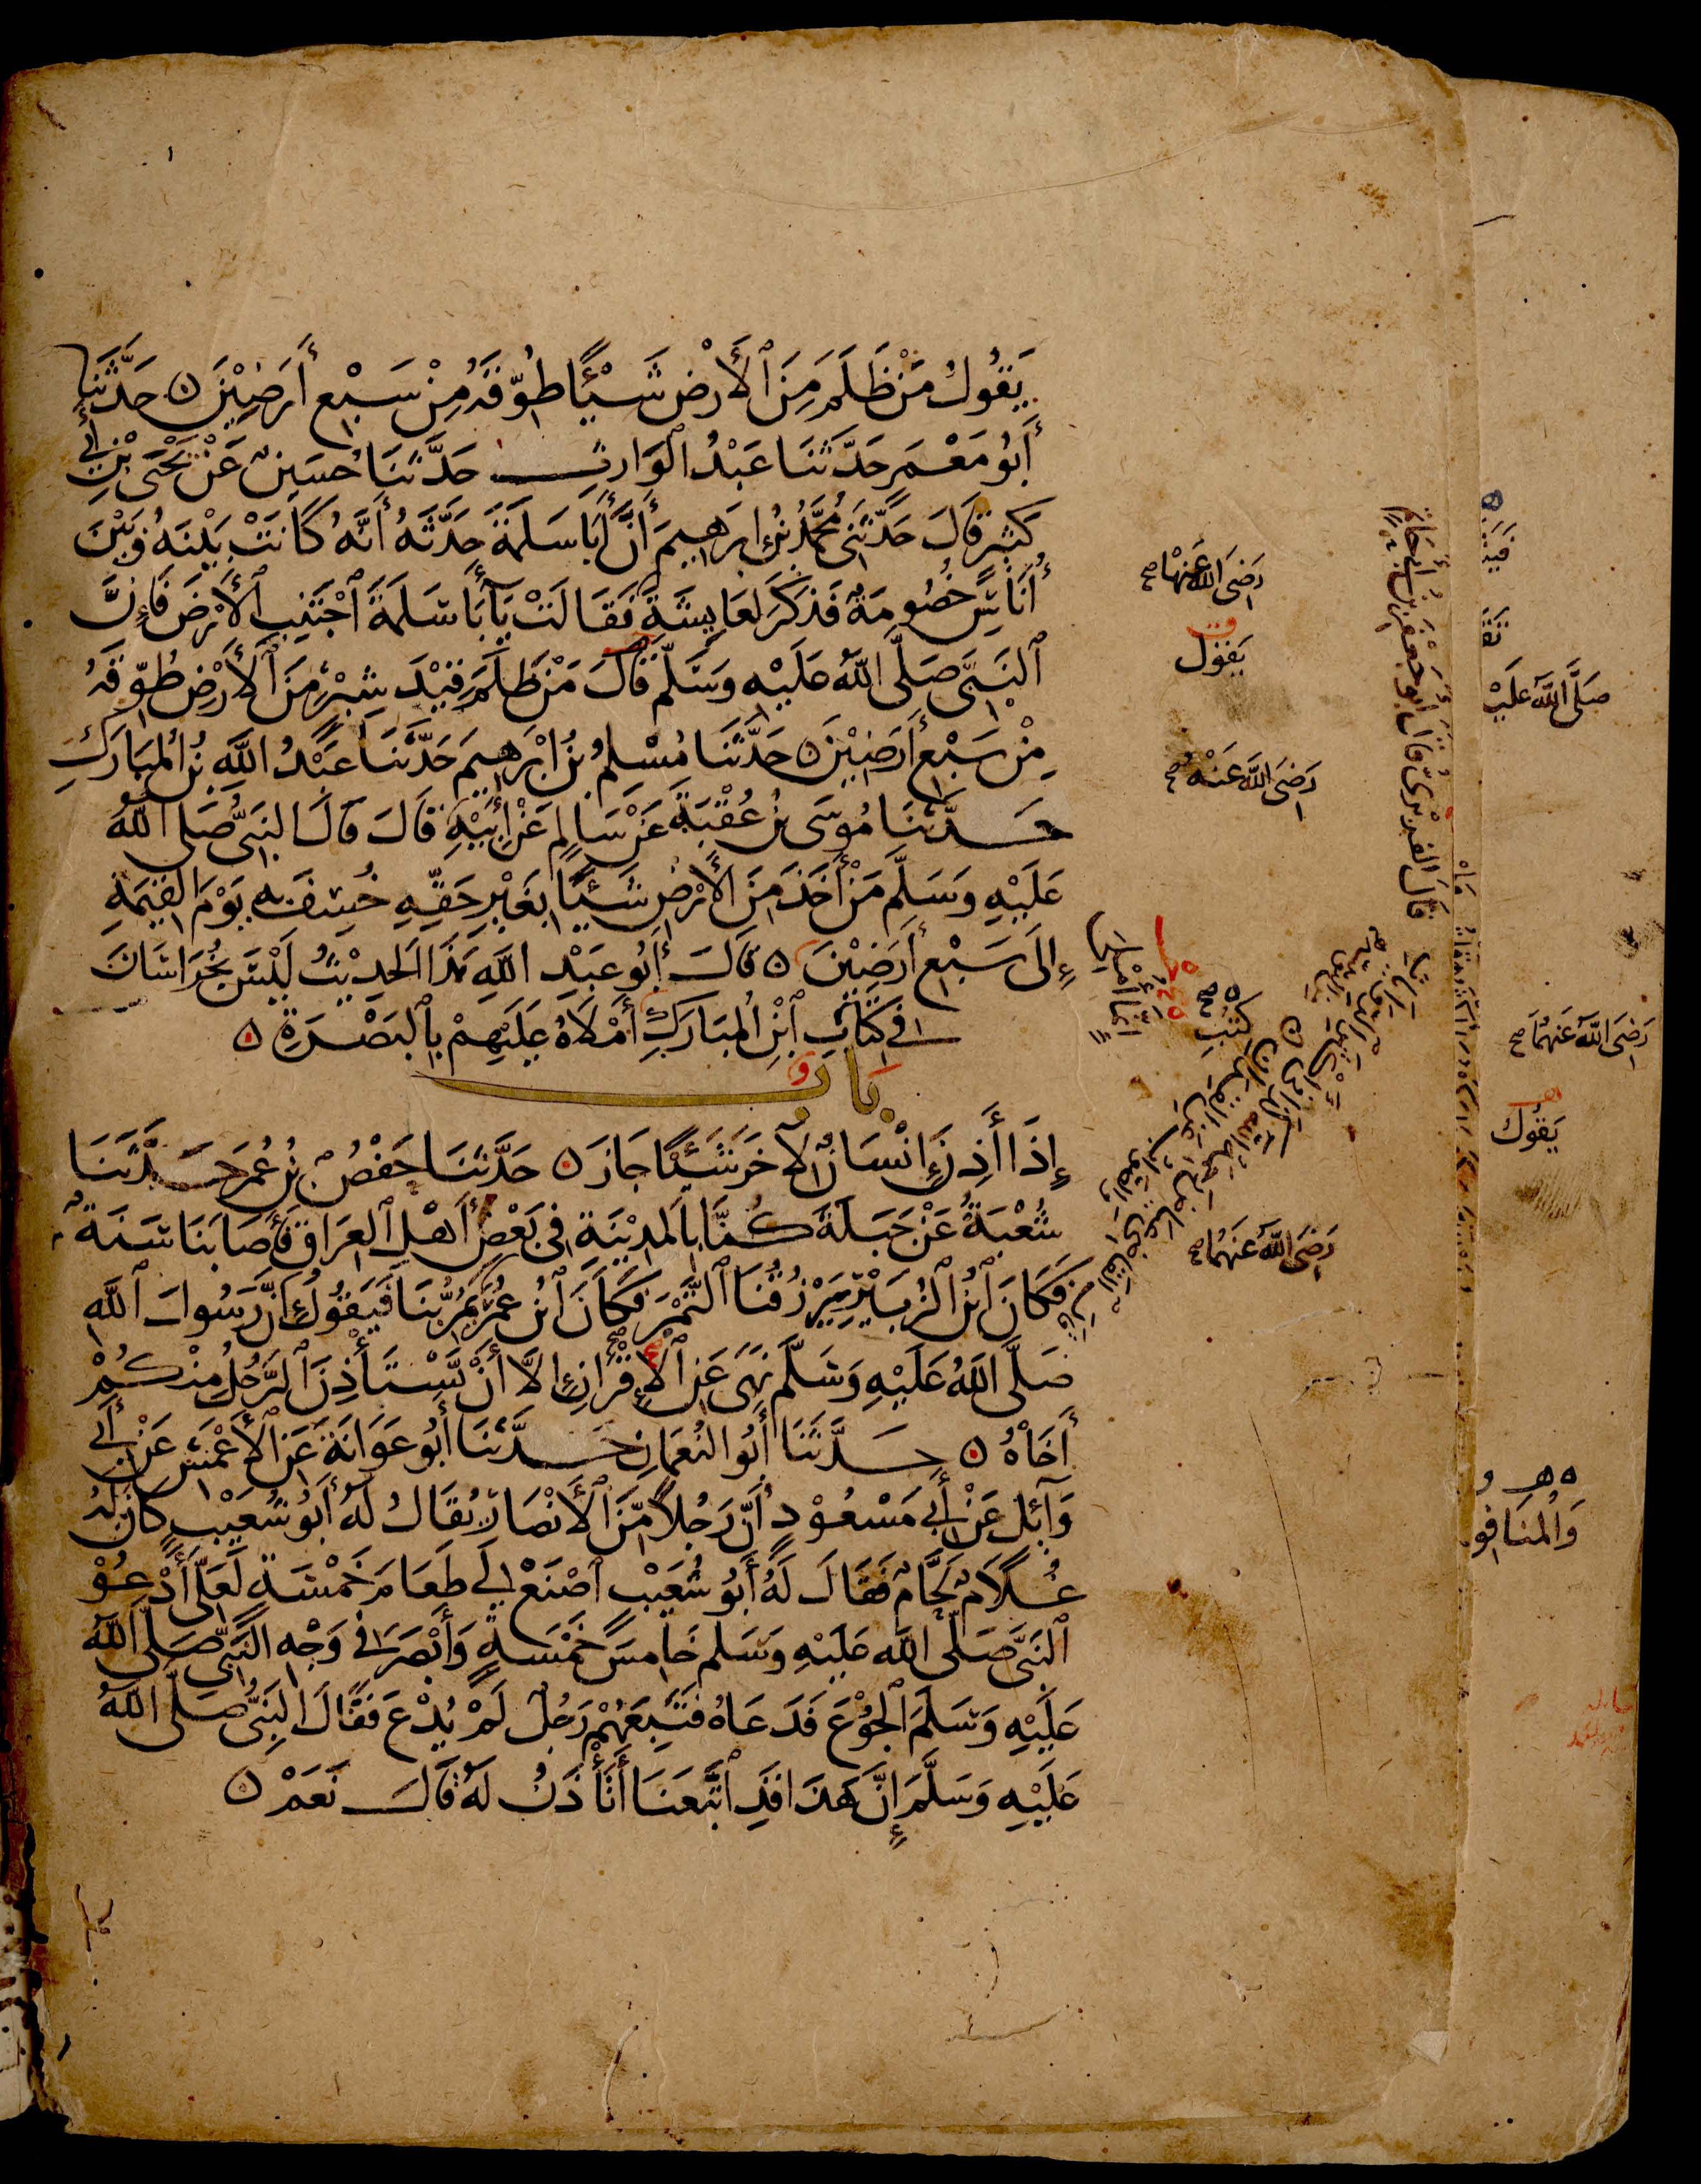 يَقُولُ مَنْ ظَلَمَ مِنَ ٱلْأَرْضِ شَيْئًا طُوِّقَهُ مِنْ سَبْعِ أَرَضِيْنَ ۞ حَدَّثَنَا
أَبُو مَعْمَرٍ حَدَّثَنَا عَبْدُ الْوَارِثِ حَدَّثَنَا حُسَيْنٌ عَنْ يَحْيَى بْنِ أَبِي
كَثِيرٍ قَالَ حَدَّثَنِي مُحَمَّدُ بْنُ إِبْرَهِيمَ أَنَّ أَبَا سَلَمَةَ حَدَّثَهُ أَنَّهُ كَانَتْ بَيْنَهُ وَبَيْنَ
أُنَاسٍ خُصُومَةٌ فَذَكَرَ لِعَايِشَةَ فَقَالَتْ يَآ أَبَا سَلَمَةَ ٱجْتَنِبِ ٱلْأَرْضَ فَإِنَّ
ٱلنَّبِيَّ صَلَّى اللَّهُ عَلَيْهِ وَسَلَّمَ قَالَ مَنْ ظَلَمَ قِيْدَ شِبْرٍ مِنَ ٱلْأَرْضِ طُوِّقَهُ
مِنْ سَبْعِ أَرَضِيْنَ ۞ حَدَّثَنَا مُسْلِمُ بْنُ إِبْرَهِيمَ حَدَّثَنَا عَبْدُ اللَّهِ بْنُ الْمُبَارَكِ
حَدَّثَنَا مُوسَى بْنُ عُقْبَةَ عَنْ سَالِمٍ عَنْ أَبِيْهِ قَالَ قَالَ النَّبِيُّ صَلَّى اللَّهُ
عَلَيْهِ وَسَلَّمَ مَنْ أَخَذَ مِنَ الْأَرْضِ شَيْئًا بِغَيْرِ حَقِّهِ خُسِفَ بِهِ يَوْمَ الْقِيَمَةِ
إِلَى سَبْعِ أَرَضِيْنَ ۞ قَالَ أَبُو عَبْدِ اللَّهِ هَذَا الْحَدِيْثُ لَيْسَ بِخُرَاسَانَ
فِي كِتَابِ ٱبْنِ الْمُبَارَكِ أَمْلَاهُ عَلَيْهِمْ بِالْبَصْرَةِ ۞
بَابٌ
إِذَا أَذِنَ إِنْسَانٌ لِآخَرَ شَيْئًا جَازَ ۞ حَدَّثَنَا حَفْصُ بْنُ عُمَرَ حَدَّثَنَا
شُعْبَةُ عَنْ جَبَلَةَ كُنَّا بِالْمَدِيْنَةِ فِي بَعْضِ أَهْلِ ٱلْعِرَاقِ فَأَصَابَنَا سَنَةٌ
فَكَانَ ٱبْنُ ٱلزُّبَيْرِ يَرْزُقُنَا ٱلتَّمْرَ فَكَانَ ٱبْنُ عُمَرَ يَمُرُّ بِنَا فَيَقُولُ إِنَّ رَسُولَ ٱللَّهِ
صَلَّى اللَّهُ عَلَيْهِ وَسَلَّمَ نَهَى عَنِ ٱلْإِقْرَانِ إِلَّا أَنْ يَّسْتَأْذِنَ ٱلرَّجُلُ مِنْكُمْ
أَخَاهُ ۞ حَدَّثَنَا أَبُو النُّعْمَانِ حَدَّثَنَا أَبُو عَوَانَةَ عَنِ الْأَعْمَشِ عَنْ أَبِي
وَآئِلٍ عَنْ أَبِي مَسْعُوْدٍ أَنَّ رَجُلًا مِّنَ ٱلْأَنْصَارِ يُقَالُ لَهُ أَبُو شُعَيْبٍ كَانَ لَهُ
غُلَامٌ لَحَّامٌ فَقَالَ لَهُ أَبُو شُعَيْبٍ ٱصْنَعْ لِي طَعَامَ خَمْسَةٍ لَعَلِّي أَدْعُوْ
ٱلنَّبِيَّ صَلَّى اللَّهُ عَلَيْهِ وَسَلَّمَ خَامِسَ خَمْسَةٍ وَأَبْصَرَ فِي وَجْهِ النَّبِيِّ صَلَّى اللَّهُ
عَلَيْهِ وَسَلَّمَ ٱلْجُوْعَ فَدَعَاهُ فَتَبِعَهُمْ رَجُلٌ لَمْ يُدْعَ فَقَالَ النَّبِيُّ صَلَّى اللَّهُ
عَلَيْهِ وَسَلَّمَ إِنَّ هَذَا قَدِ ٱتَّبَعَنَا أَتَأْذَنُ لَهُ قَالَ نَعَمْ ۞
رَضِيَ اللَّهُ عَنْهَا صح
يَقُولُ
رَضِيَ اللَّهُ عَنْهُ صح
كُتُبِ
رَضِيَ اللَّهُ عَنْهُمَا صح
قَالَ الفِرَبْرِيُّ قَالَ أَبُو جَعْفَرِ بْنُ أَبِي حَاتِمٍ
صَلَّى اللَّهُ عَلَيْ
رَضِيَ اللَّهُ عَنْهُمَا صح
يَقُولُ
وَالْمُنَافِقُ